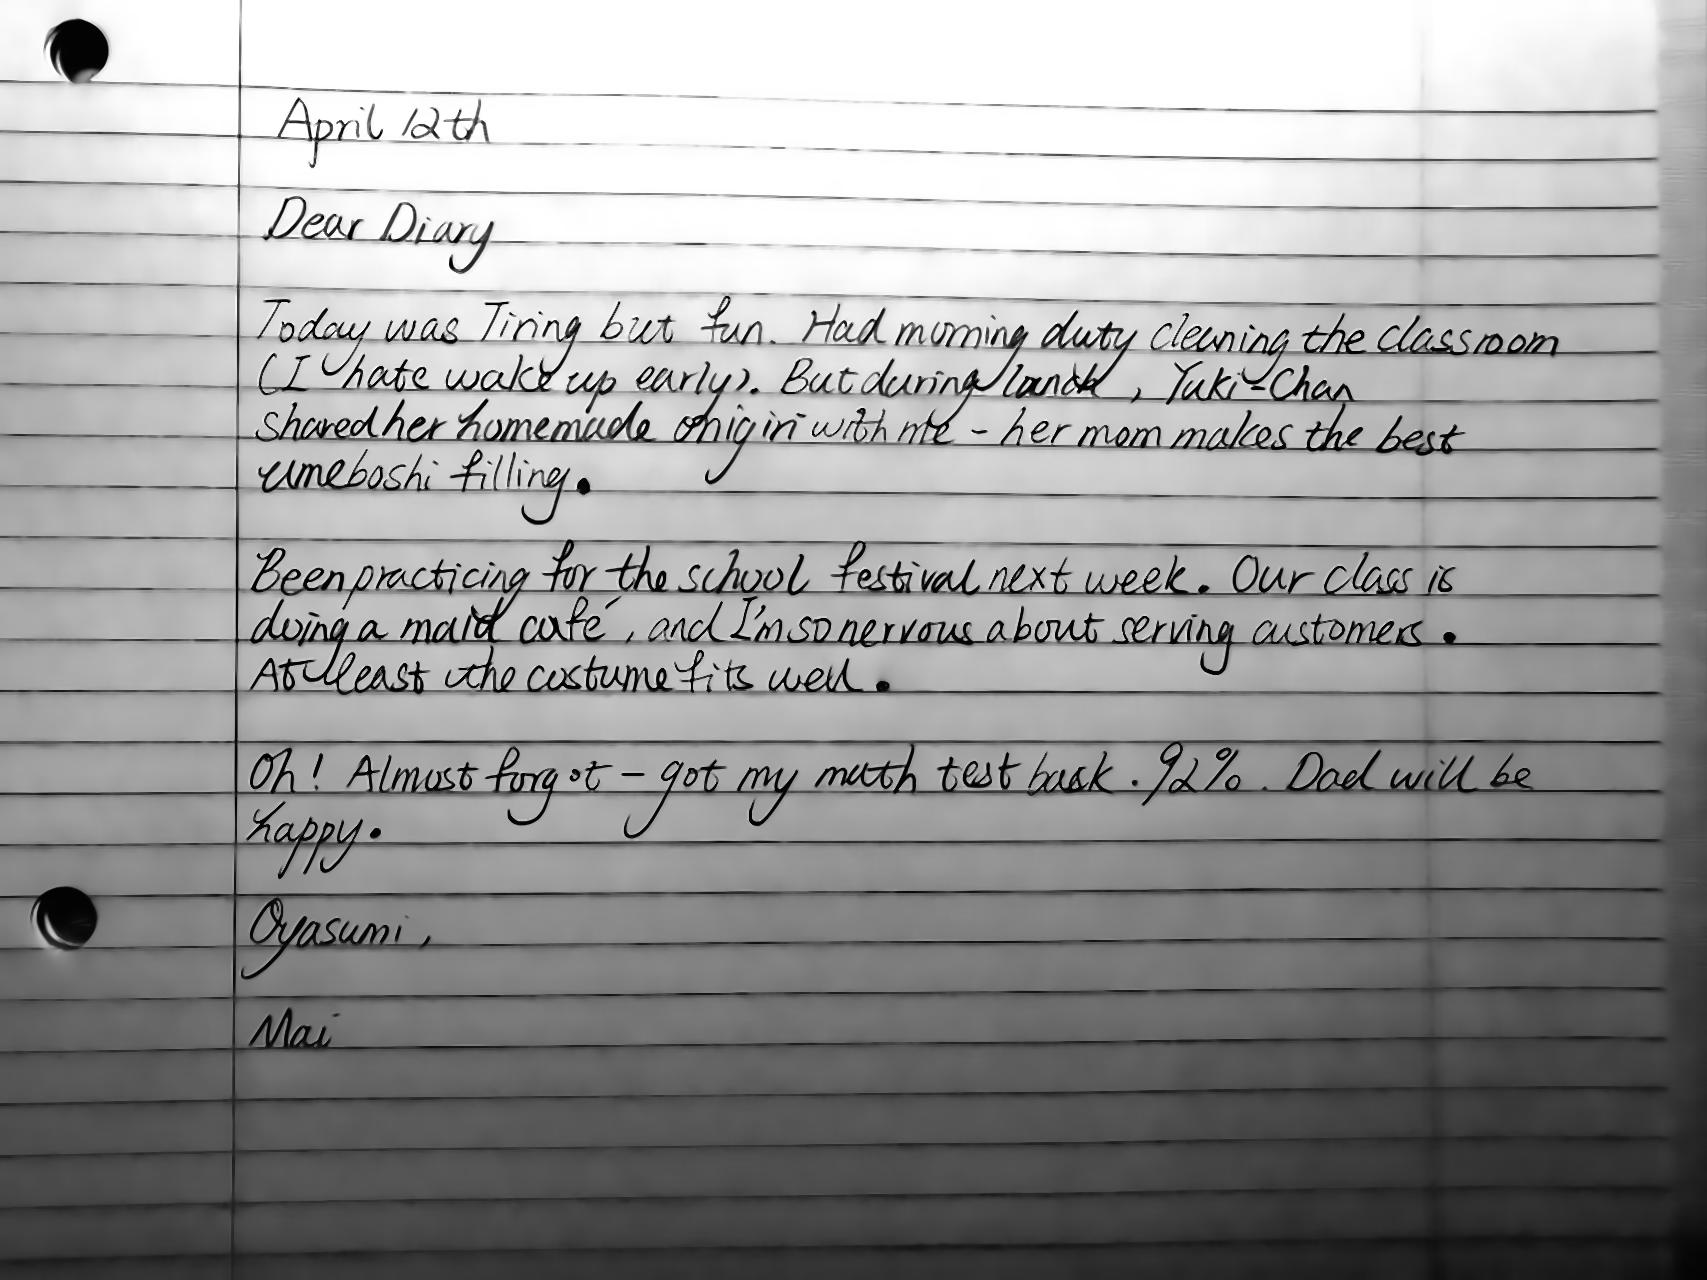 April 12th
Dear Diary
Today was Tiring but fun. Had morning duty cleaning the classroom
(I hate wake up early). But during lunch, Yuki-Chan
shared her homemade onigiri with me - her mom makes the best
umeboshi filling.
Been practicing for the school festival next week. Our class is
doing a maid café, and I'm so nervous about serving customers.
At least the costume fits well.
Oh! Almost forgot - got my math test back. 92%. Dad will be
happy.
Oyasumi,
Mai